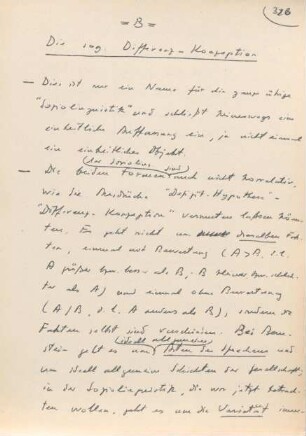 326
= B =
Die sog. Differenz-Konzeption
— Dies ist nur ein Name für die ganze übrige
"Soziolinguistik" und schließt keineswegs eine
einheitliche Auffassung ein, ja nicht einmal
ein einheitliches Objekt.
— Die beiden Termini sind nicht korrelativ,
wie die Ausdrücke "Defizit-Hypothese" -
"Differenz-Konzeption" vermuten lassen könn-
ten. Es geht nicht um dieselben Fak-
ten, einmal mit Bewertung (A > B, d.h.
A größer bzw. besser als B, B kleiner bzw. schlech-
ter als A) und einmal ohne Bewertung
(A / B, d.h. A anders als B), sondern die
Fakten selbst sind verschieden. Bei Bern-
stein geht es um ideell allgemeine Arten des Sprechens und
um ideell allgemeine Schichten der Gesellschaft,
in der Soziolinguistik, die wir jetzt betrach-
ten wollen, geht es um die Varietät inner-